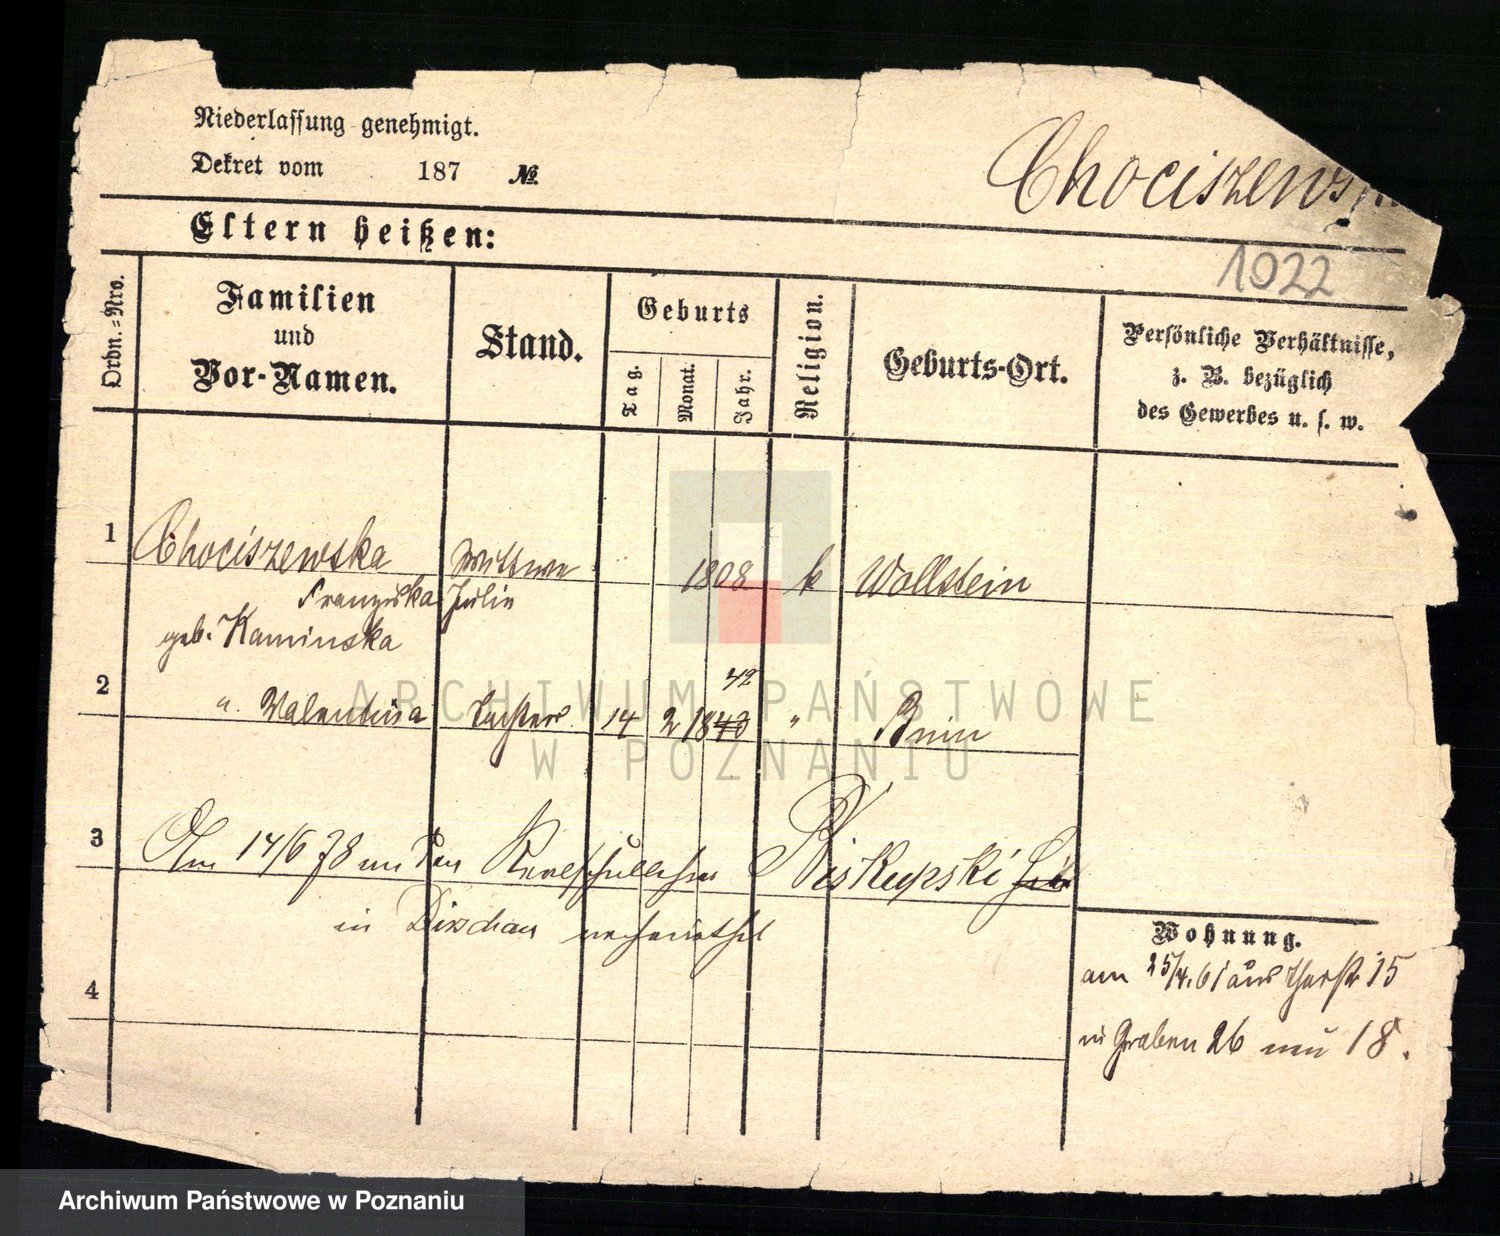 Niederlassung genehmigt.
Dekret vom 187 №
Chociszewsk
Eltern heißen:
1022
Ordn.=Nro.
Familien
und
Vor-Namen.
Stand.
Geburts
Tag.
Monat.
Jahr.
Religion.
Geburts-Ort.
Persönliche Verhältnisse,
z. B. bezüglich
des Gewerbes u. s. w.
1 Chociszewska Wittwe 1808 k Wollstein
Franziska Julie
geb. Kaminska
42
2 " Valentina Tochter 14 2 1843 " Bnin
3 Am 14/6 78 an den Realschullehrer Biskupski
in Dirschau verheirathet
4
Wohnung.
am 25/4. 61 aus 15
in Graben 26 nun 18.
ARCHIWUM PAŃSTWOWE
W POZNANIU
Archiwum Państwowe w Poznaniu